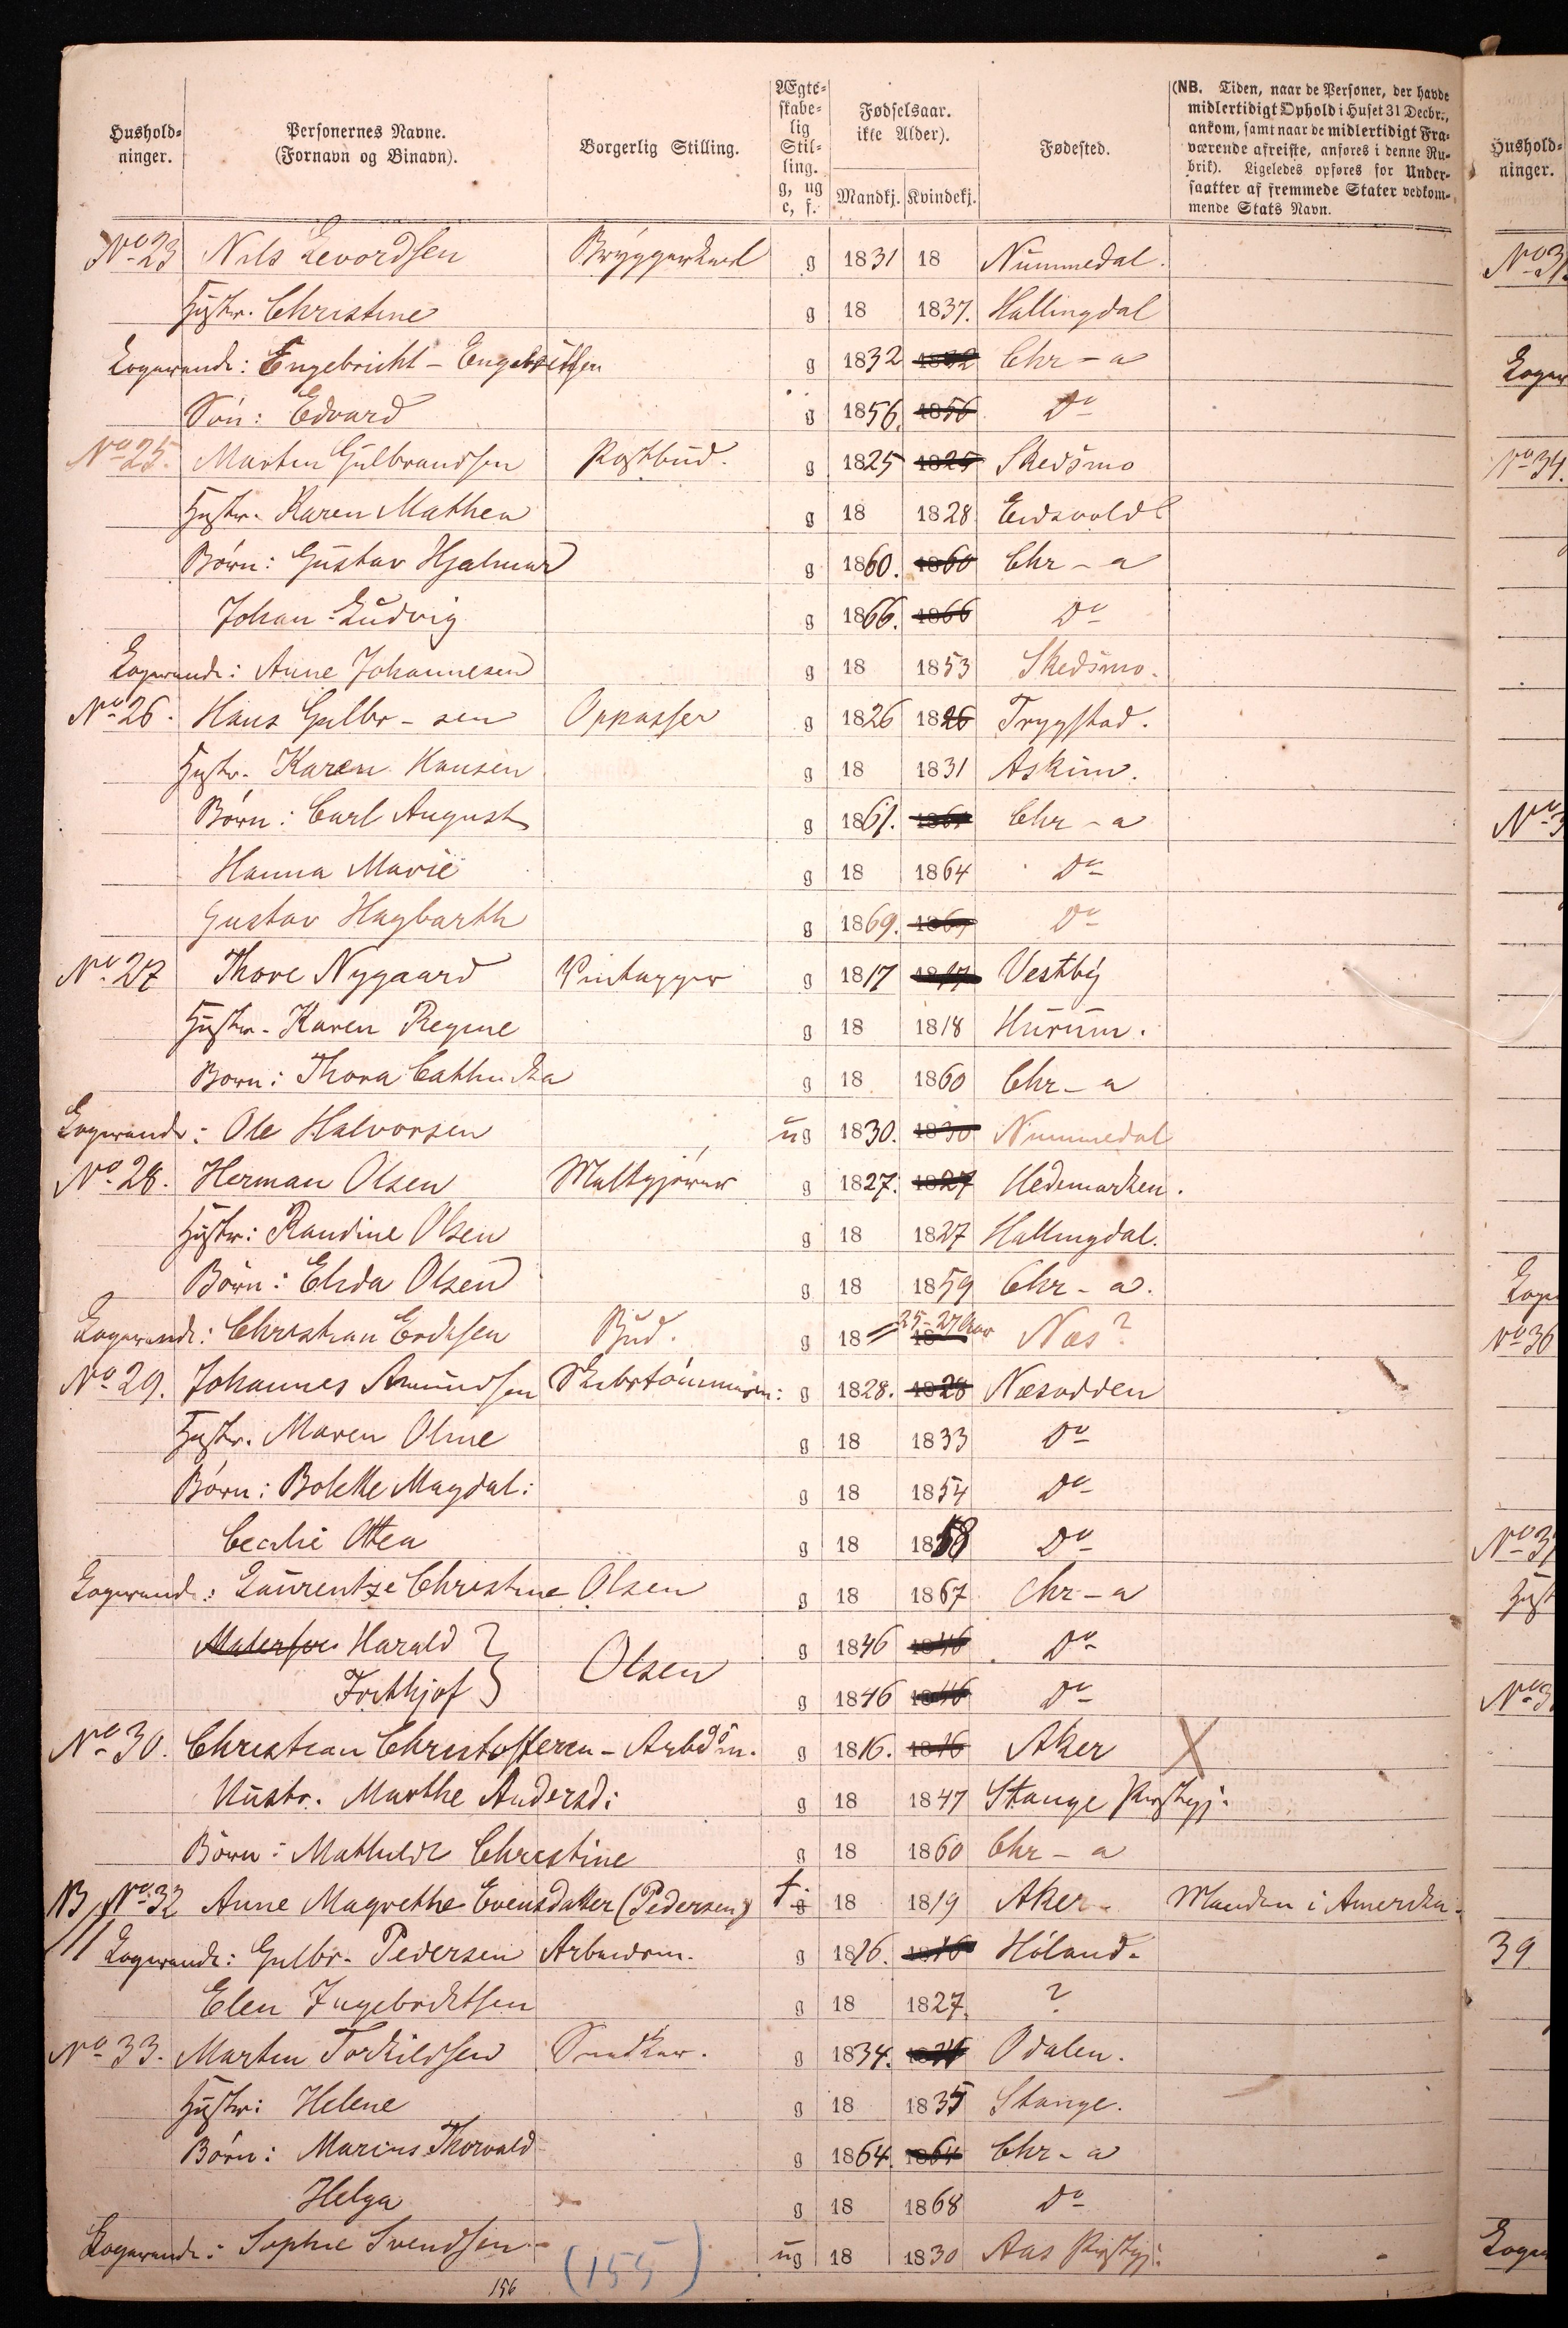 Hushold-
ninger.
Personernes Navne.
(Fornavn og Binavn).
Borgerlig Stilling.
Ægte-
skabe-
lig
Stil-
ling.
g, ug
e, f.
Fødselsaar.
ikke Alder).
Mandkj. Kvindekj.
Fødested.
(NB. Tiden, naar de Personer, der havde
midlertidigt Ophold i Huset 31 Decbr.,
ankom, samt naar de midlertidigt Fra-
værende afreiste, anføres i denne Ru-
brik). Ligeledes opføres for Under-
saatter af fremmede Stater vedkom-
mende Stats Navn.
No 23 Nils Levordsen Bryggerkarl g 1831 18 Nummedal.
Hustr. Christine g 18 1837. Hallingdal
Logerende: Engebricht - Engebritsen g 1832 1832 Chr - a
Søn: Edvard g 1856. 1856 Do
No 25. Martin Gulbrandsen Postbud. g 1825 1825 Skedsmo
Hustr. Karen Mathea g 18 1828 Eidsvold
Børn: Gustav Hjalmar g 1860. 1860 Chr - a
Johan Ludvig g 1866. 1866 Do
Logerende: Anne Johannesen g 18 1853 Skedsmo.
No 26. Hans Gulbr - sen Oppasser g 1826 1826 Trygstad.
Hustr. Karen Hansen g 18 1831 Askim.
Børn: Carl August g 1861. 1861 Chr - a
Hanna Marie g 18 1864 Do
Gustav Hagbarth g 1869. 1869 Do
No 27 Thore Nygaard Vintapper g 1817 1817 Vestby
Hustr. Karen Regine g 18 1818 Hurum.
Børn: Thora Cathinka g 18 1860 Chr - a
Logerende: Ole Halvorsen ug 1830. 1830 Nummedal
No 28. Herman Olsen Maltgjører g 1827. 1827 Hedemarken.
Hustr: Randine Olsen g 18 1827 Hallingdal.
Børn: Elida Olsen g 18 1859 Chr - a.
Logerende: Christian Ericksen Bud. g 18 18 25-27 Aar Næs?
No 29. Johannes Amundsen Skibstømmerm: g 1828. 1828 Næsodden
Hustr. Maren Oline g 18 1833 Do
Børn: Bolette Magdal: g 18 1854 Do
Cecilie Ottea g 18 1858 Do
Logerend: Laurentze Christine Olsen g 18 1867 Chr - a
Harald } Olsen g 1846 1846 Do
Frithjof g 1846 1846 Do
No 30. Christian Christoffersen - Arbdsm. g 1816. 1816 Aker X
Hustr. Marthe Andersd: g 18 1847 Stange Prstgj.
Børn: Mathilde Christine g 18 1860 Chr - a
NB No 32 Anne Magrethe Evensdatter (Pedersen) f. g 18 1819 Aker - Manden i Amerika.
Logerende: Gulbr. Pedersen Arbeidsm. g 1816. 1816 Høland.
Elen Ingebrethsen g 18 1827. ?
No 33. Martin Torkildsen Snedker. g 1834. 1834 Odalen.
Hustr: Helene g 18 1835 Stange.
Børn: Marius Thorvald g 1864. 1864 Chr - a
Helga g 18 1868 Do
Logerende: Sophie Svendsen - ug 18 1830 Aas Prstgj:
156 (155)
Hushold-
ninger.
No 34.
No 36
39